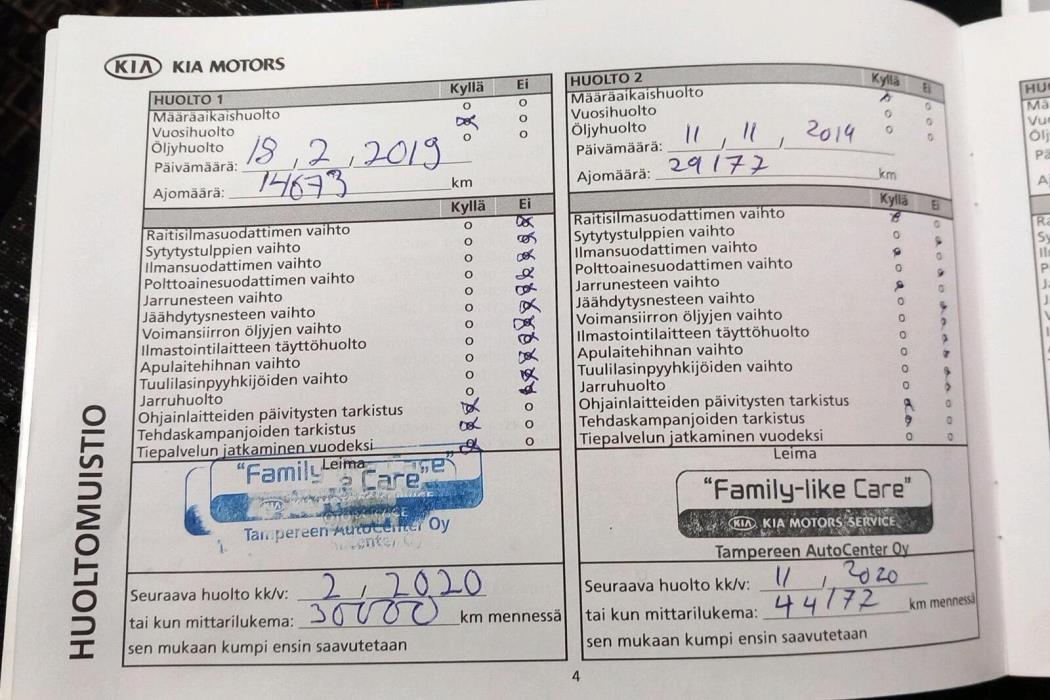 KIA KIA MOTORS
HUOLTO 1 Kyllä Ei
Määräaikaishuolto
Vuosihuolto
Öljyhuolto
Päivämäärä: 18 , 2 , 2019
Ajomäärä: 14673 km
Kyllä Ei
Raitisilmasuodattimen vaihto
Sytytystulppien vaihto
Ilmansuodattimen vaihto
Polttoainesuodattimen vaihto
Jarrunesteen vaihto
Jäähdytysnesteen vaihto
Voimansiirron öljyjen vaihto
Ilmastointilaitteen täyttöhuolto
Apulaitehihnan vaihto
Tuulilasinpyyhkijöiden vaihto
Jarruhuolto
Ohjainlaitteiden päivitysten tarkistus
Tehdaskampanjoiden tarkistus
Tiepalvelun jatkaminen vuodeksi
Leima
"Family Care"
Tampereen AutoCenter Oy
Seuraava huolto kk/v: 2 , 2020
tai kun mittarilukema: 30000 km mennessä
sen mukaan kumpi ensin saavutetaan
HUOLTO 2 Kyllä Ei
Määräaikaishuolto
Vuosihuolto
Öljyhuolto
Päivämäärä: 11 , 11 , 2019
Ajomäärä: 29177 km
Kyllä Ei
Raitisilmasuodattimen vaihto
Sytytystulppien vaihto
Ilmansuodattimen vaihto
Polttoainesuodattimen vaihto
Jarrunesteen vaihto
Jäähdytysnesteen vaihto
Voimansiirron öljyjen vaihto
Ilmastointilaitteen täyttöhuolto
Apulaitehihnan vaihto
Tuulilasinpyyhkijöiden vaihto
Jarruhuolto
Ohjainlaitteiden päivitysten tarkistus
Tehdaskampanjoiden tarkistus
Tiepalvelun jatkaminen vuodeksi
Leima
"Family-like Care"
KIA KIA MOTORS SERVICE
Tampereen AutoCenter Oy
Seuraava huolto kk/v: 11 , 2020
tai kun mittarilukema: 44172 km mennessä
sen mukaan kumpi ensin saavutetaan
HUOLTOMUISTIO
4